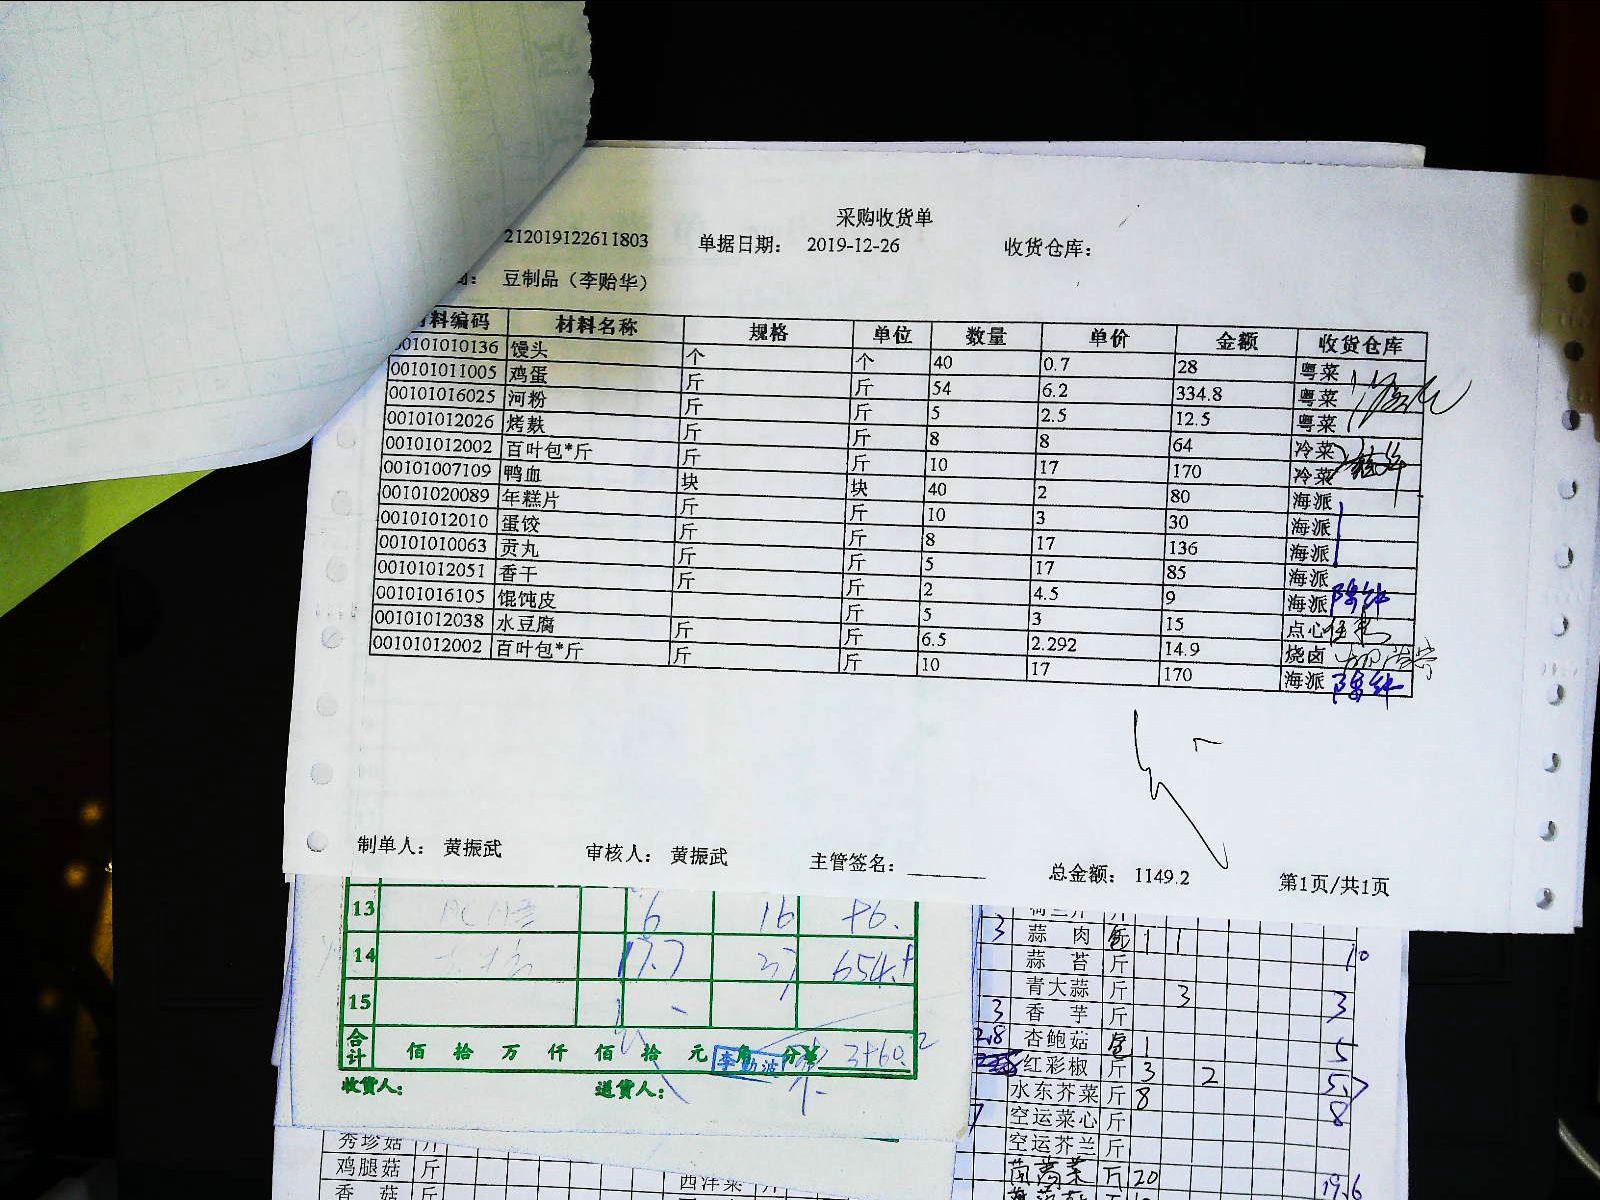 采购收货单
212019122611803 单据日期： 2019-12-26 收货仓库：
豆制品（李贻华）
材料编码 材料名称 规格 单位 数量 单价 金额 收货仓库
00101010136 馒头 个 个 40 0.7 28 粤菜
00101011005 鸡蛋 斤 斤 54 6.2 334.8 粤菜
00101016025 河粉 斤 斤 5 2.5 12.5 粤菜
00101012026 烤麸 斤 斤 8 8 64 冷菜
00101012002 百叶包*斤 斤 斤 10 17 170 冷菜
00101007109 鸭血 块 块 40 2 80 海派
00101020089 年糕片 斤 斤 10 3 30 海派
00101012010 蛋饺 斤 斤 8 17 136 海派
00101010063 贡丸 斤 斤 5 17 85 海派
00101012051 香干 斤 斤 2 4.5 9 海派
00101016105 馄饨皮 斤 5 3 15 点心
00101012038 水豆腐 斤 斤 6.5 2.292 14.9 烧卤
00101012002 百叶包*斤 斤 斤 10 17 170 海派
制单人： 黄振武 审核人： 黄振武 主管签名： 总金额： 1149.2 第1页/共1页
13 6 16
14 17.7 37
15
合计 佰 拾 万 仟 佰 拾 元 角 分￥
李勤波
收货人： 退货人：
3 蒜肉 1 1 10
蒜苔 斤
青大蒜 斤 3 3
3 香芋 斤
2.8 杏鲍菇 1 5
红彩椒 斤 3 2 5.7
水东芥菜 斤 8 8
空运菜心 斤
空运芥兰 斤
茼蒿菜 斤 20 19.6
秀珍菇 斤
鸡腿菇 斤
香菇 斤
西洋菜 斤